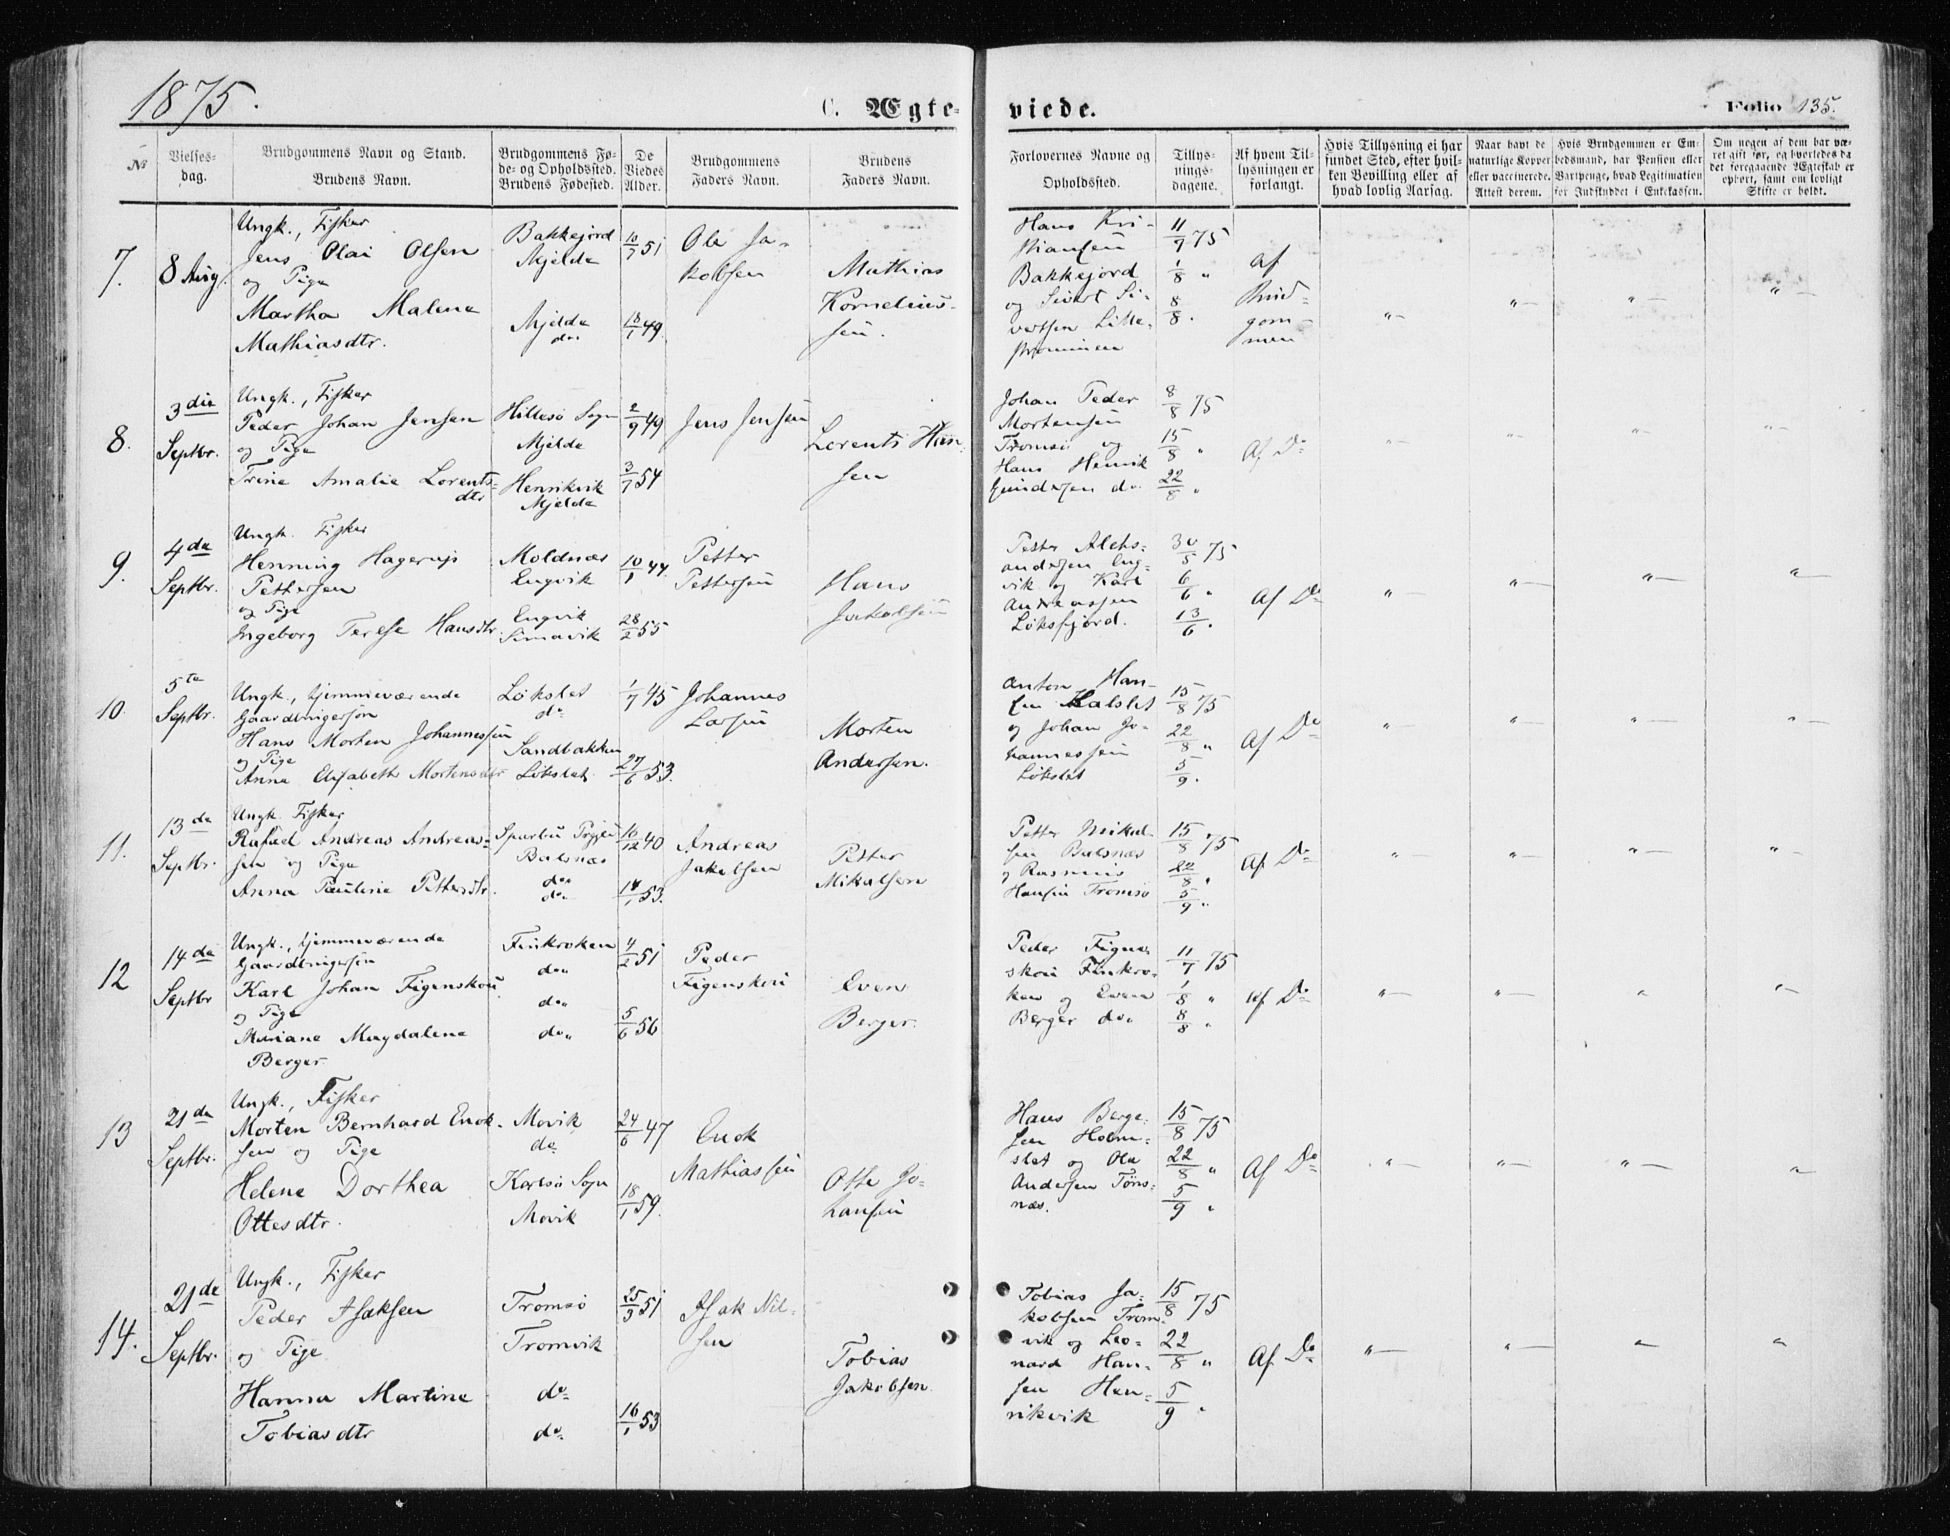 1875.
C. Ægte-
viede.
Folio 135.
No
Vielses-
dag.
Brudgommens Navn og Stand.
Brudens Navn.
Brudgommens Fø-
de- og Opholdssted.
Brudens Fødested.
De
Viedes
Alder.
Brudgommens
Faders Navn.
Brudens
Faders Navn.
Forlovernes Navne og
Opholdssted.
Tillys-
nings-
dagene.
Af hvem Til-
lysningen er
forlangt.
Hvis Tillysning ei har
fundet Sted, efter hvil-
ken Bevilling eller af
hvad lovlig Aarsag.
Naar havt de
naturlige Kopper
eller vaccinerede.
Attest derom.
Hvis Brudgommen er Em-
bedsmand, har Pension eller
Vartpenge, hvad Legitimation
for Indskuddet i Enkekassen.
Om nogen af dem har væ-
ret gift før, og hvorledes da
det foregaaende Ægteskab er
ophørt, samt om lovligt
Skifte er holdt.
7.
8 Aug.
Ungk., Fisker
Jens Olai Olsen
og Pige
Martha Malene
Mathiasdtr.
Bakkejord
Mjelde
Mjelde
do"
10/7 51
18/1 49.
Ole Ja-
kobsen
Mathias
Kornelius-
sen.
Hans Kri-
stiansen
Bakkejord
og Sivert Si-
vertsen Lille-
strømmen
11/7 75
1/8 "
8/8 "
Af
Brud-
gom-
men
"— "— "— "—
8.
3die
Septbr.
Ungk., Fisker
Peder Johan Jensen
og Pige
Trine Amalie Lorents-
dtr
Hillesø Sogn
Mjelde
Henrikvik
Mjelde
2/9 49
3/7 54
Jens Jensen
Lorents Han-
sen
Johan Peder
Mortensen
Tromsø og
Hans Henrik
Gundersen do.
8/8 75
15/8 "
22/8 "
Af Do
"— "— "— "—
9.
4de
Septbr.
Ungk. Fisker
Henning Hagerup
Pettersen
og Pige
Ingeborg Terese Hansdtr.
Moldnæs
Engvik
Engvik
Simavik
10/1 44.
28/2 55
Petter
Pettersen
Hans
Jakobsen
Petter Aleks-
andersen Eng-
vik og Karl
Andreassen
Løksfjord.
30/5 75
6/6 "
13/6 "
Af Do
"— "— "— "—
10.
5te
Septbr.
Ungk., hjemmeværende
Gaardbrugersøn
Hans Morten Johannessen
og Pige
Anna Elisabeth Mortensdtr
Løkslet
do
Sandbakken
Løkslet.
1/7 45
27/6 53.
Johannes
Larsen
Morten
Andersen.
Anton Han-
sen Kalslet
og Johan Jo-
hannessen
Løkslet
15/8 75
22/8 "
5/9 "
Af Do
"— "— "— "—
11.
13de
Septbr.
Ungk. Fisker
Rafael Andreas Andreas-
sen og Pige
Anna Pauline Pettersdtr.
Sparbu
Balsnæs
do"
do"
16/12 40
14/1 53.
Andreas
Jakobsen
Petter
Mikalsen
Petter Mikal-
sen Balsnæs
og Rasmus
Hansen Tromsø
15/8 75
22/8 "
5/9 "
Af Do
"— "— "— "—
12
14de
Septbr
Ungk., hjemmeværende
Gaardbrugersøn
Karl Johan Figenskou
og Pige
Mariane Magdalene
Berger
Finkroken
do"
do"
do"
4/2 51
5/6 56
Peder
Figenskou
Even
Berger.
Peder Figen-
skou Finkro-
ken og Even
Berger do"
11/7 75
1/8 "
8/8 "
Af Do
"— "— "— "—
13
21de
Septbr.
Ungk., Fisker
Morten Bernhard Enok-
sen og Pige
Helene Dorthea
Ottesdtr.
Movik
do
Karlsø Sogn
Movik
24/6 47
18/1 59.
Enok
Mathiassen
Otte Jo-
hansen
Hans Berge-
sen Holm-
slet og Ole
Andersen Tøns-
næs.
15/8 75
22/8 "
5/9 "
Af Do
"— "— "— "—
14.
21de
Septbr.
Ungk., Fisker
Peder Isaksen
og Pige
Hanna Martine
Tobiasdtr
Tromsø
Tromvik
do
do
25/3 51
16/1 53
Isak Nil-
sen
Tobias
Jakobsen
Tobias Ja-
kobsen Trom-
vik og Leo-
nard Han-
sen Hen-
rikvik
15/8 75
22/8 "
5/9 "
Af Do
"— "— "— "—